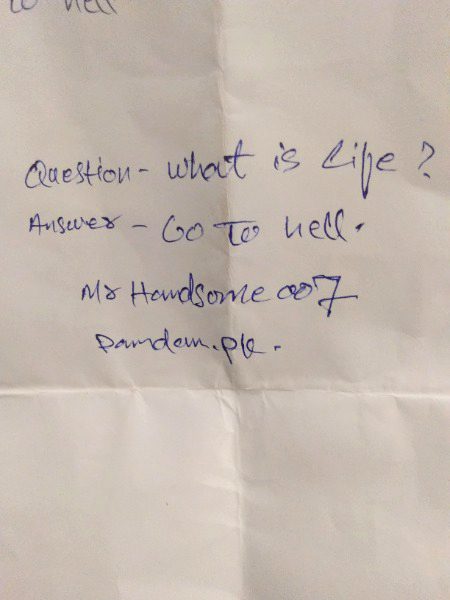 to hell
Question - what is life?
Answer - Go To hell.
Mr Handsome 007